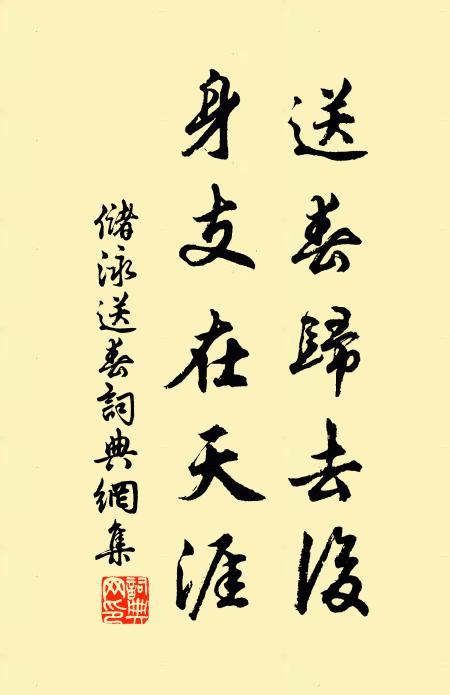 送春歸去後
身支在天涯
儲泳送春詞典網集
詞典網印